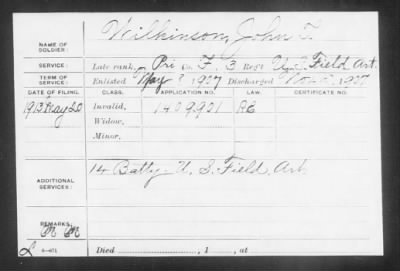 NAME OF SOLDIER: Wilkinson, John T.
SERVICE: Late rank, Pri Co. F, 3 Reg't U.S. Field Art.
TERM OF SERVICE: Enlisted May 8, 1907 Discharged 1907
DATE OF FILING. CLASS. APPLICATION NO. LAW. CERTIFICATE NO.
1913 May 20 Invalid, 1409901
Widow,
Minor,
ADDITIONAL SERVICES: 14 Batty. U.S. Field Art.
REMARKS:
Died , 1 , at